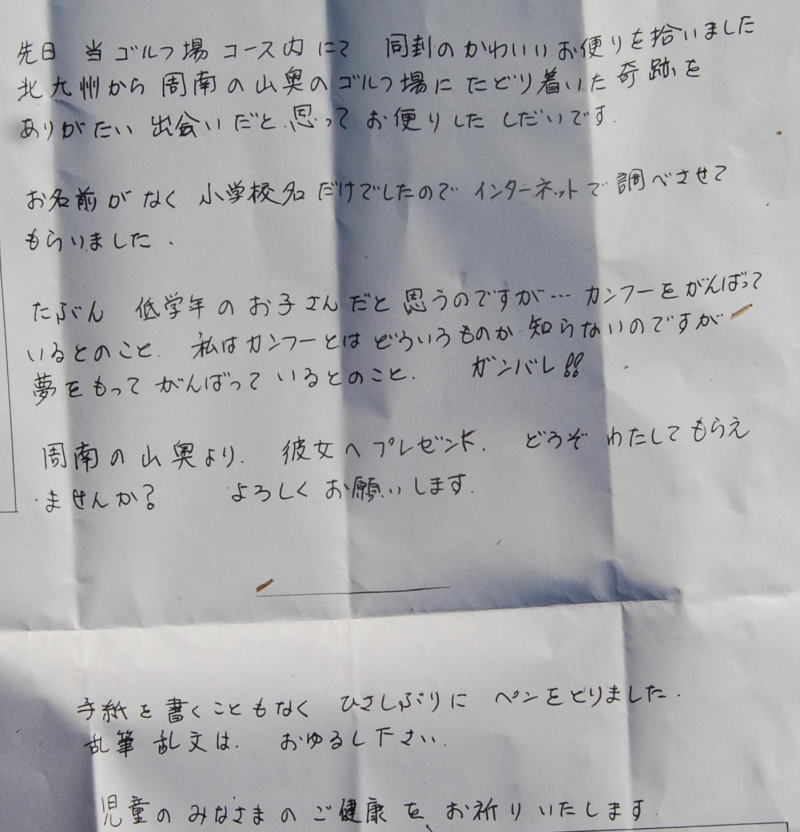 先日 当ゴルフ場 コース内にて 同封のかわいいお便りを拾いました
北九州から 周南の山奥のゴルフ場に たどり着いた奇跡を
ありがたい 出会いだと思って お便りした しだいです.
お名前がなく 小学校名だけでしたので インターネットで調べさせて
もらいました.
たぶん 低学年のお子さんだと思うのですが… カンフーをがんばって
いるとのこと. 私はカンフーとは どういうものか 知らないのですが
夢をもって がんばって いるとのこと. ガンバレ!!
周南の山奥より. 彼女へプレゼント. どうぞ わたしてもらえ
ませんか? よろしくお願いします.
手紙を書くこともなく ひさしぶりに ペンをとりました.
乱筆乱文は. おゆるし下さい.
児童の みなさまの ご健康を お祈りいたします.